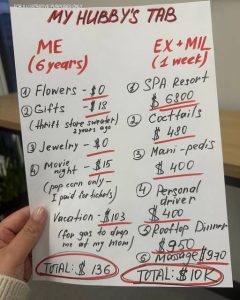 MY HUBBY'S TAB
ME
(6 years)
① Flowers - $0
② Gifts - $18
(thrift store sweater)
2 years ago
③ Jewelry - $0
Movie
night - $15
(pop corn only -
I paid for tickets)
Vacation - $103
(for gas to drop
me at my mom)
TOTAL: $136
EX + MIL
(1 week)
① SPA Resort
$6800
2. Cocttails
$480
③ Mani-pedis
$400
④ Personal
driver
$400
⑤ Rooftop Dinner
$950
⑥ Massage $970
TOTAL: $10K